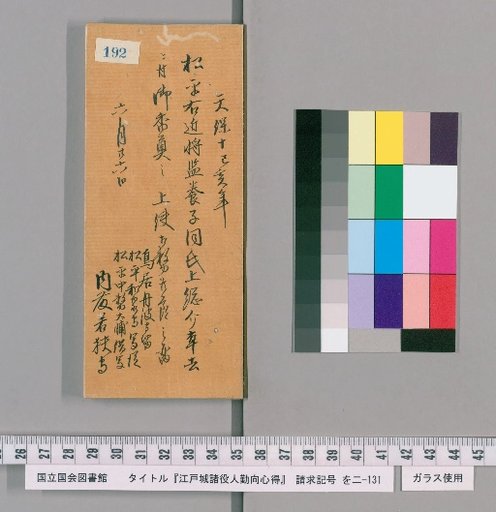 192
天保十己亥年
松平右近将監養子同氏上総介卒去
ニ付御香奠之上使
六月廿六日
鳥居丹波守
松平和泉守
松平中務大輔
内藤若狭守
26 27 28 29 30 31 32 33 34 35 36 37 38 39 40 41 42 43 44 45
国立国会図書館 タイトル『江戸城諸役人勤向心得』 請求記号 を二-131
ガラス使用